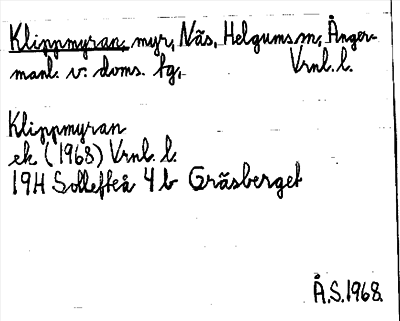 Klippmyran, myr, Näs, Helgums sn, Ånger-
manl. v. doms. tg, Vrnl. l.
Klippmyran
ek (1968) Vrnl. l.
19H Sollefteå 4b Gräsberget
Å.S.1968.